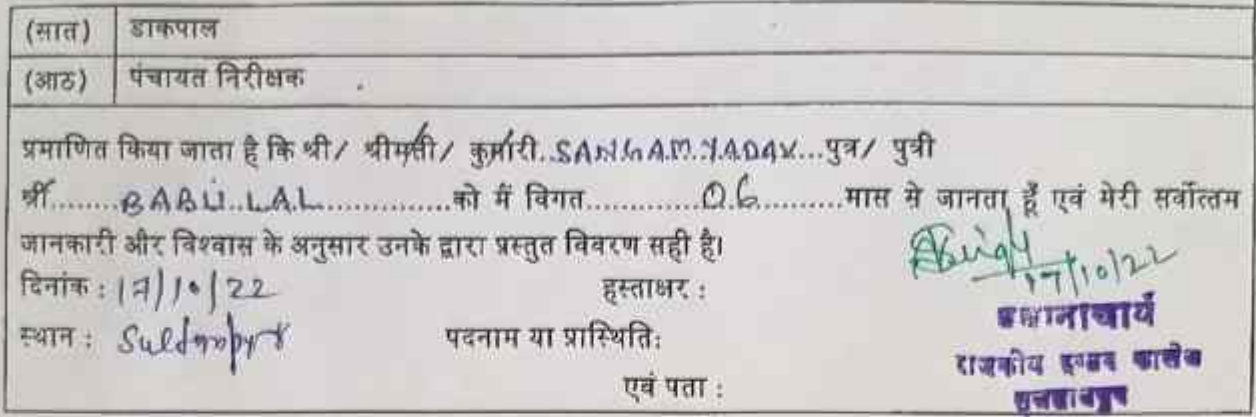 (सात) डाकपाल
(आठ) पंचायत निरीक्षक
प्रमाणित किया जाता है कि श्री/ श्रीमती/ कुमारी..SANGAM.YADAV...पुत्र/ पुत्री
श्री........BABU.LAL...............को मैं विगत.............06.........मास से जानता हूँ एवं मेरी सर्वोत्तम
जानकारी और विश्वास के अनुसार उनके द्वारा प्रस्तुत विवरण सही है।
17/10/22
दिनांक : 17/10/22 हस्ताक्षर :
प्रधानाचार्य
स्थान : Sultanpur पदनाम या प्रास्थिति:
राजकीय इण्टर कालेज
एवं पता :